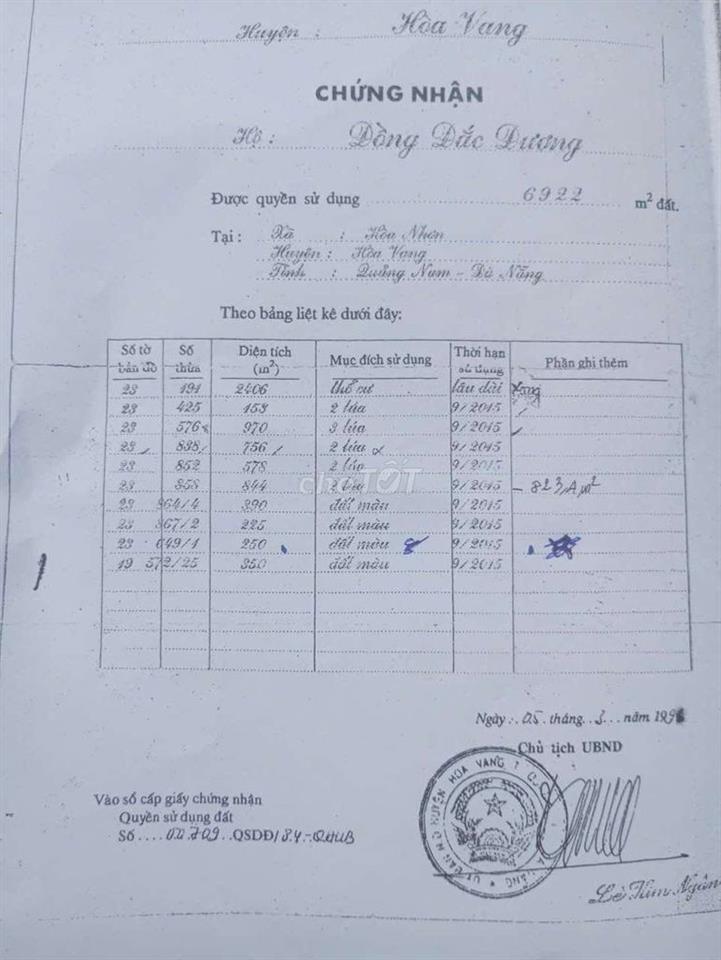 Huyện : Hòa Vang
CHỨNG NHẬN
Hộ : Đồng Đắc Dương
Được quyền sử dụng 6922 m² đất.
Tại : Xã : Hòa Nhơn
Huyện : Hòa Vang
Tỉnh : Quảng Nam - Đà Nẵng
Theo bảng liệt kê dưới đây:
Số tờ bản đồ Số thửa Diện tích (m²) Mục đích sử dụng Thời hạn sử dụng Phần ghi thêm
23 191 2406 Thổ cư lâu dài
23 425 153 2 lúa 9/2015
23 576 970 3 lúa 9/2015
23 838 756 2 lúa 9/2015
23 852 578 2 lúa 9/2015
23 858 844 2 lúa 9/2015 - 823,1 m²
23 864/4 390 đất màu 9/2015
23 867/2 225 đất màu 9/2015
23 649/1 250 đất màu 9/2015
19 572/25 350 đất màu 9/2015
chợTỐT
Ngày 05 tháng 3 năm 199
Chủ tịch UBND
Vào sổ cấp giấy chứng nhận
Quyền sử dụng đất
Số QSDĐ/
HUYỆN HÒA VANG
Lê Kim Ngân